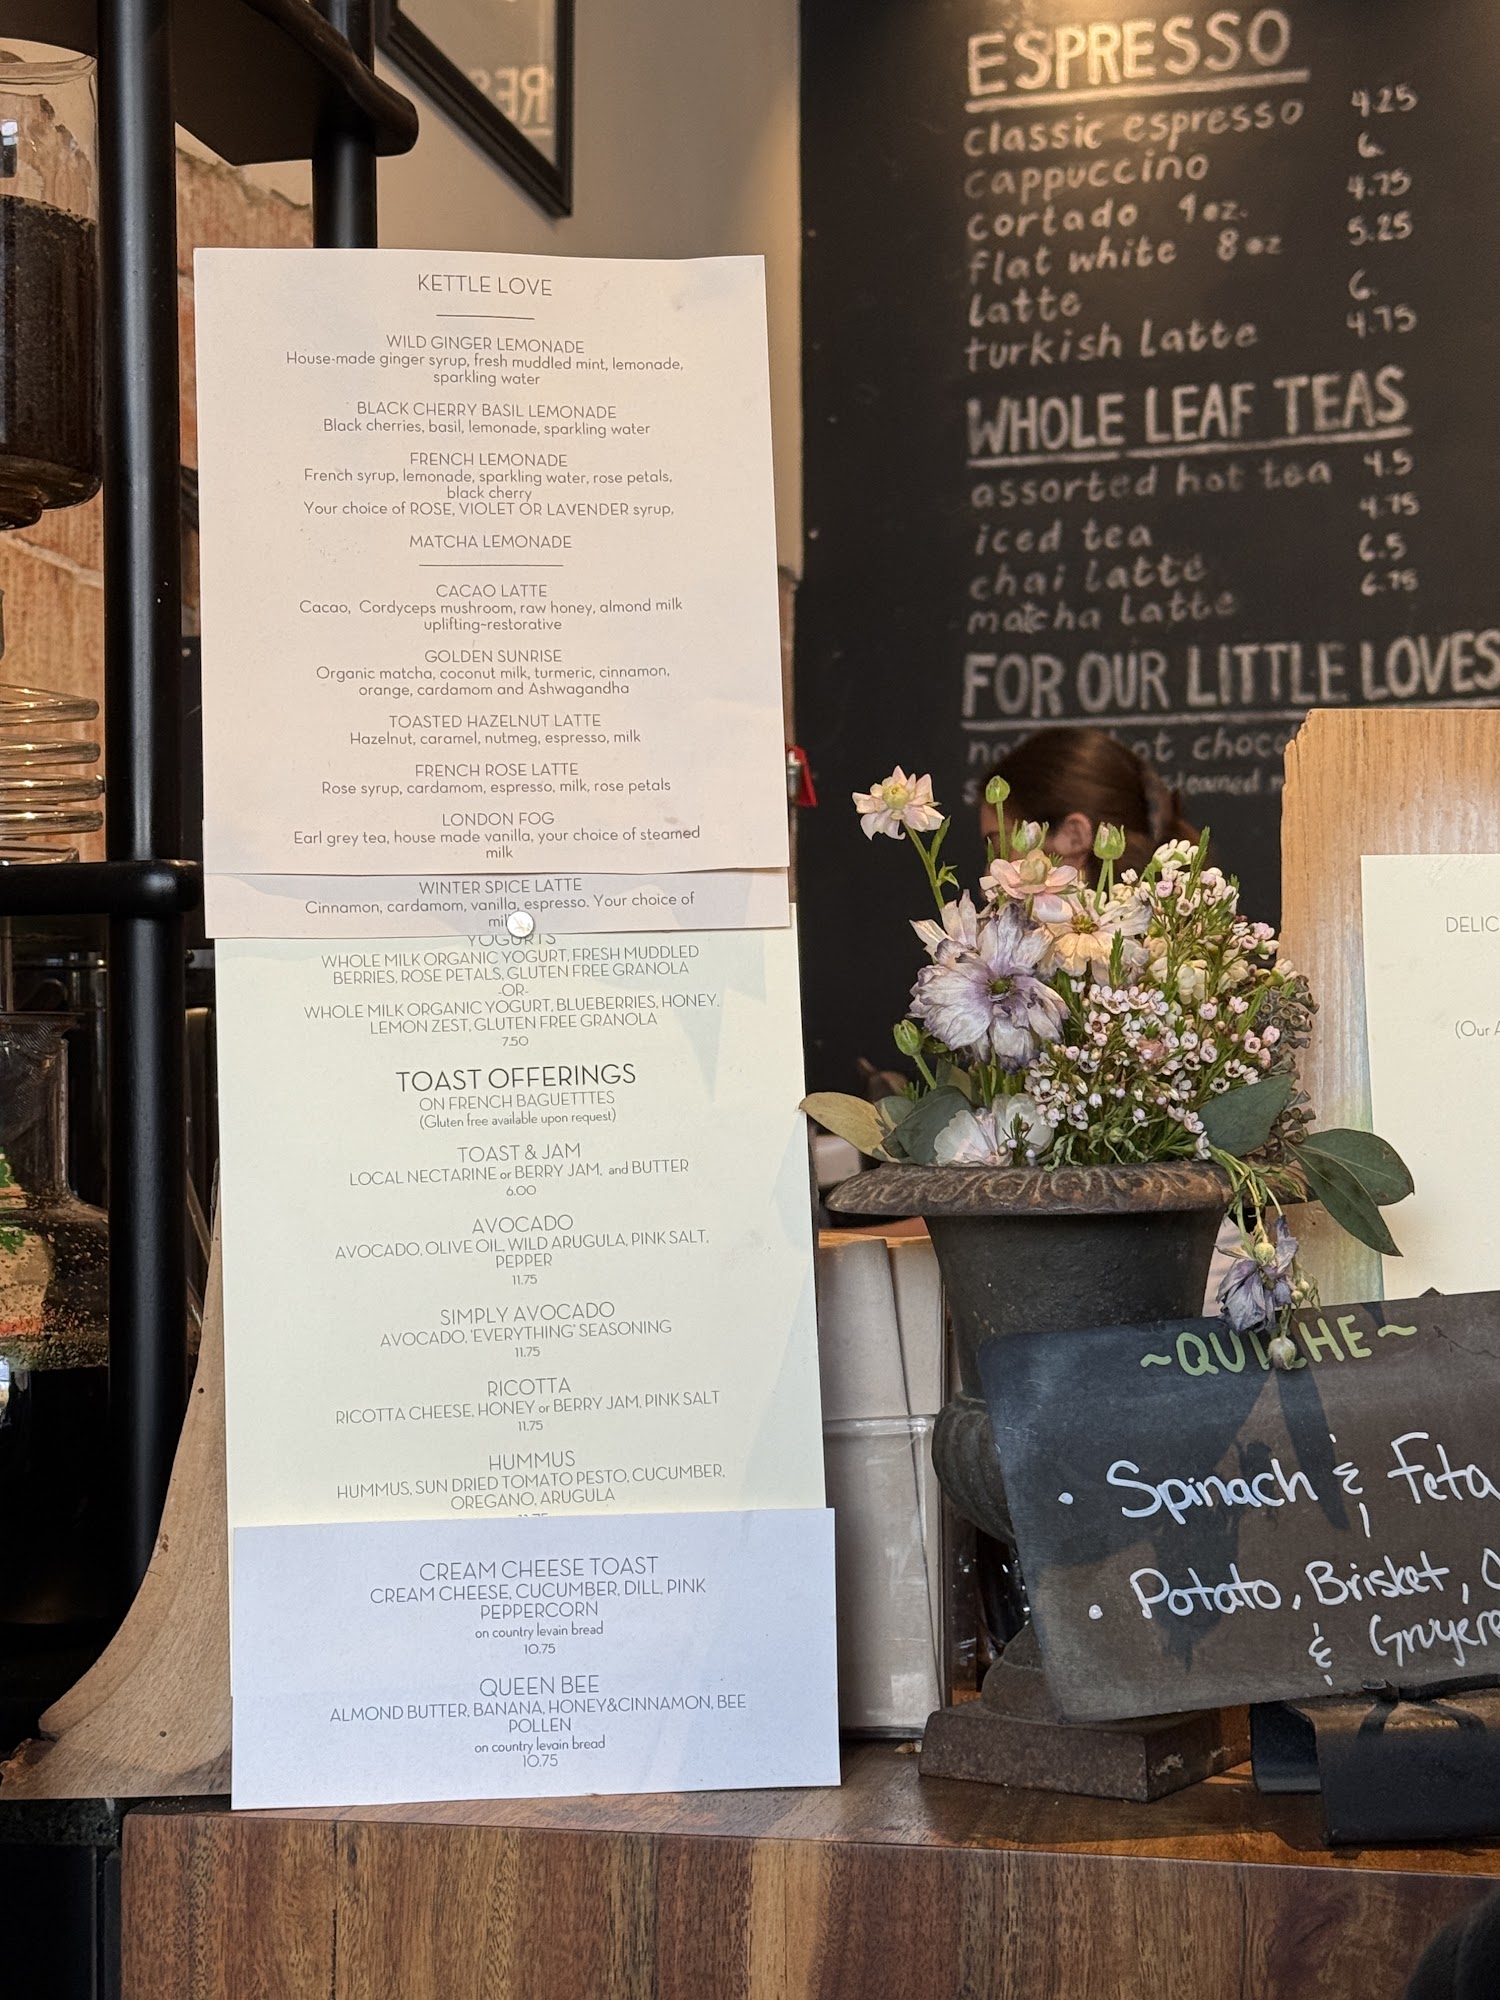 KETTLE LOVE
WILD GINGER LEMONADE
House-made ginger syrup, fresh muddled mint, lemonade,
sparkling water
BLACK CHERRY BASIL LEMONADE
Black cherries, basil, lemonade, sparkling water
FRENCH LEMONADE
French syrup, lemonade, sparkling water, rose petals,
black cherry
Your choice of ROSE, VIOLET OR LAVENDER syrup,
MATCHA LEMONADE
CACAO LATTE
Cacao, Cordyceps mushroom, raw honey, almond milk
uplifting~restorative
GOLDEN SUNRISE
Organic matcha, coconut milk, turmeric, cinnamon,
orange, cardamom and Ashwagandha
TOASTED HAZELNUT LATTE
Hazelnut, caramel, nutmeg, espresso, milk
FRENCH ROSE LATTE
Rose syrup, cardamom, espresso, milk, rose petals
LONDON FOG
Earl grey tea, house made vanilla, your choice of steamed
milk
WINTER SPICE LATTE
Cinnamon, cardamom, vanilla, espresso. Your choice of
YOGURTS
WHOLE MILK ORGANIC YOGURT, FRESH MUDDLED
BERRIES, ROSE PETALS, GLUTEN FREE GRANOLA
-OR-
WHOLE MILK ORGANIC YOGURT, BLUEBERRIES, HONEY,
LEMON ZEST, GLUTEN FREE GRANOLA
7.50
TOAST OFFERINGS
ON FRENCH BAGUETTTES
(Gluten free available upon request)
TOAST & JAM
LOCAL NECTARINE or BERRY JAM, and BUTTER
6.00
AVOCADO
AVOCADO, OLIVE OIL, WILD ARUGULA, PINK SALT,
PEPPER
11.75
SIMPLY AVOCADO
AVOCADO, 'EVERYTHING' SEASONING
11.75
RICOTTA
RICOTTA CHEESE, HONEY or BERRY JAM, PINK SALT
11.75
HUMMUS
HUMMUS, SUN DRIED TOMATO PESTO, CUCUMBER,
OREGANO, ARUGULA
CREAM CHEESE TOAST
CREAM CHEESE, CUCUMBER, DILL, PINK
PEPPERCORN
on country levain bread
10.75
QUEEN BEE
ALMOND BUTTER, BANANA, HONEY&CINNAMON, BEE
POLLEN
on country levain bread
10.75
ESPRESSO
classic espresso 4.25
cappuccino 6.
cortado 4 oz. 4.75
flat white 8 oz 5.25
latte 6.
turkish latte 4.75
WHOLE LEAF TEAS
assorted hot tea 4.5
iced tea 4.75
chai latte 6.5
matcha latte 6.75
FOR OUR LITTLE LOVES
(Our
~QUICHE~
• Spinach & Feta
• Potato, Brisket,
& Gruyere